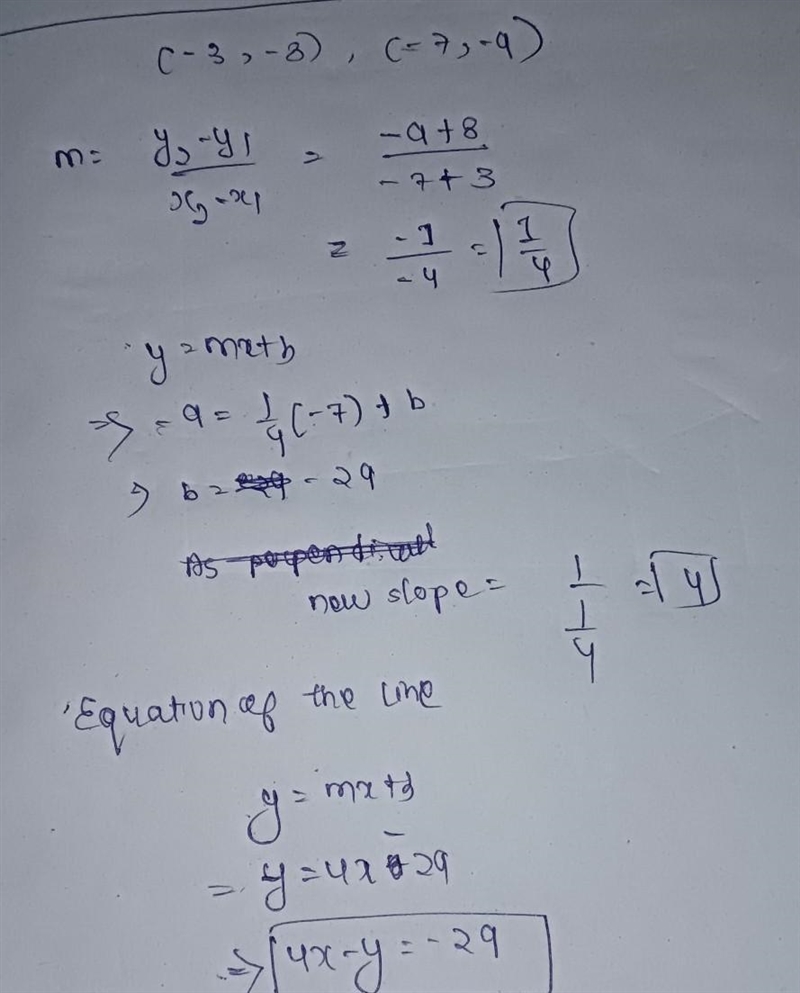 (-3, -8), (-7, -9)
m = y2 - y1 / x2 - x1 = -9+8 / -7+3
= -1/-4 = 1/4
y = mx+b
⇒ -9 = 1/4(-7) + b
⇒ b = -29
As perpendicual
new slope = 1 / 1/4 = 4
Equation of the line
y = mx+b
= y = 4x - 29
⇒ 4x-y = -29